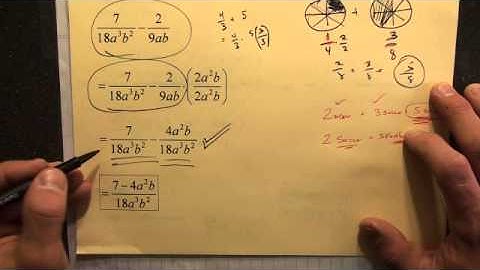 7/18a³b² - 2/9ab
= 7/18a³b² - 2/9ab · (2a²b/2a²b)
= 7/18a³b² - 4a²b/18a³b² ✓
= (7 - 4a²b)/18a³b²
+ 5
5 (3/3)
+
1/4 2/2 3/8
2/8 + 3/8 = 5/8
2